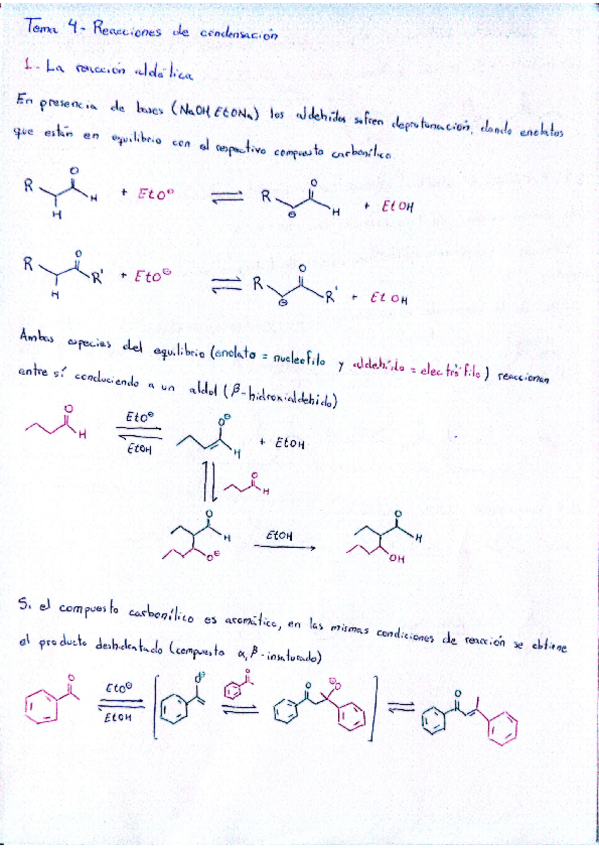 Tema 4- Reacciones de condensación
1.- La reacción aldólica
En presencia de bases (NaOH, EtONa) los aldehidos sufren deprotonación, dando enolatos
que están en equilibrio con el respectivo compuesto carbonílico
R O H H + EtO⊖ ⇌ R O ⊖ H + EtOH
R O H R' + EtO⊖ ⇌ R O ⊖ R' + EtOH
Ambas especies del equilibrio (enolato = nucleófilo y aldehido = electrófilo) reaccionan
entre sí conduciendo a un aldol (β-hidroxialdehido)
O H EtO⊖ EtOH O⊖ H + EtOH
O H
O H O⊖ EtOH O H OH
Si el compuesto carbonílico es aromático, en las mismas condiciones de reacción se obtiene
el producto deshidratado (compuesto α,β-insaturado)
O EtO⊖ EtOH O⊖ O O O⊖ O